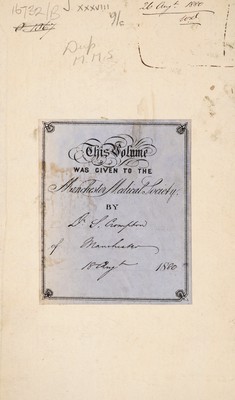 16732/B
XXXVIII
b/c
26 Augt. 1880
Dup
M.M.S.
This Volume
WAS GIVEN TO THE
Manchester Medical Society.
BY
Dr. S. Crompton
of Manchester
18 Augt 1880